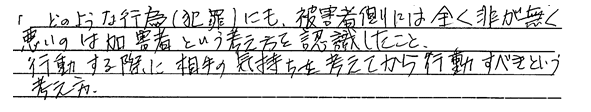 「どのような行為(犯罪)にも、被害者側には全く非が無く
悪いのは加害者という考え方を認識したこと、
行動する際に相手の気持ちを考えてから行動すべきという
考え方.